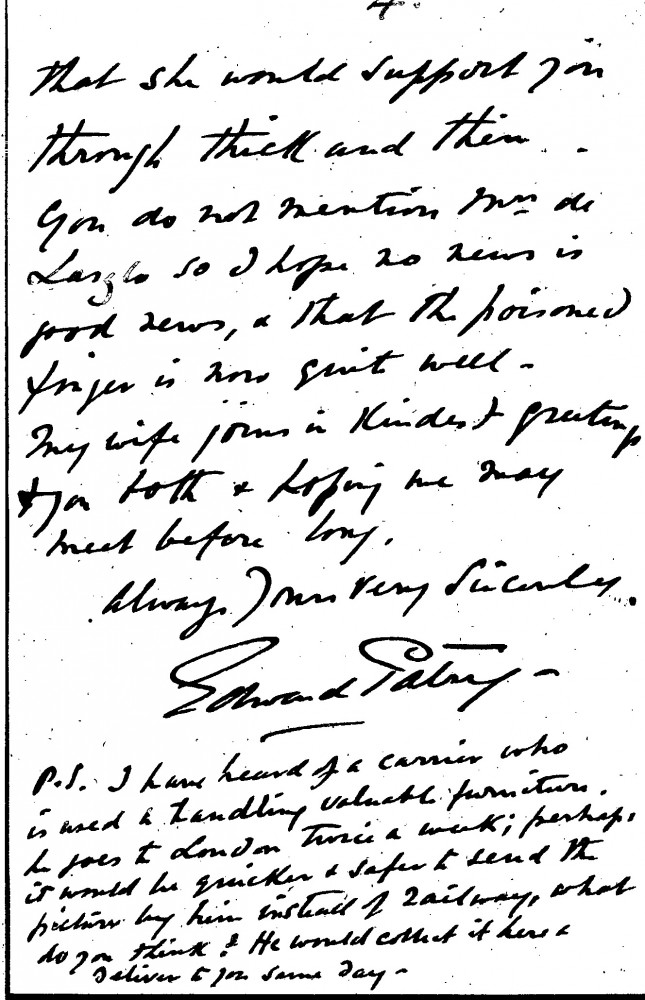 4.
that she would support you
through thick and thin.
You do not mention Mrs de
Laszlo so I hope no news is
good news, & that the poisoned
finger is now quite well -
My wife joins in kindest greetings
to you both & hoping we may
meet before long,
Always Yours very Sincerely.
Edward Patry -
P.S. I have heard of a carrier who
is used to handling valuable furniture.
he goes to London twice a week; perhaps
it would be quicker & safer to send the
picture by him instead of railway, what
do you think? He would collect it here &
deliver to you same day -